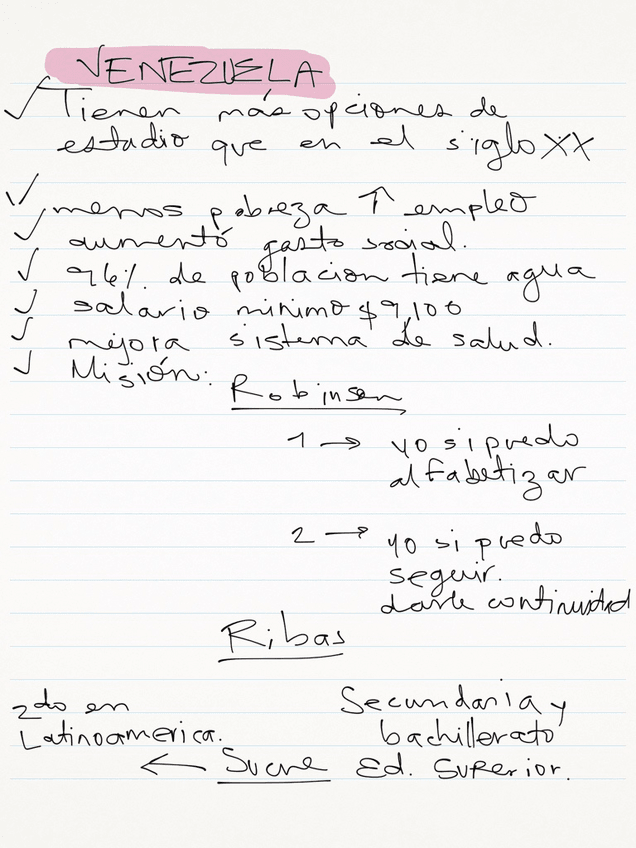 VENEZUELA
✓ Tienen más opciones de
estudio que en el siglo XX
✓ menos pobreza ↑ empleo
✓ aumentó gasto social.
✓ 96% de poblacion tiene agua
✓ salario minimo $9,100
✓ mejora sistema de salud.
✓ Misión:
Robinson
1 → yo si puedo
alfabetizar
2 → yo si puedo
seguir.
darle continuidad
Ribas
Secundaria y
bachillerato
2do en
Latinoamerica.
← Sucre Ed. Superior.